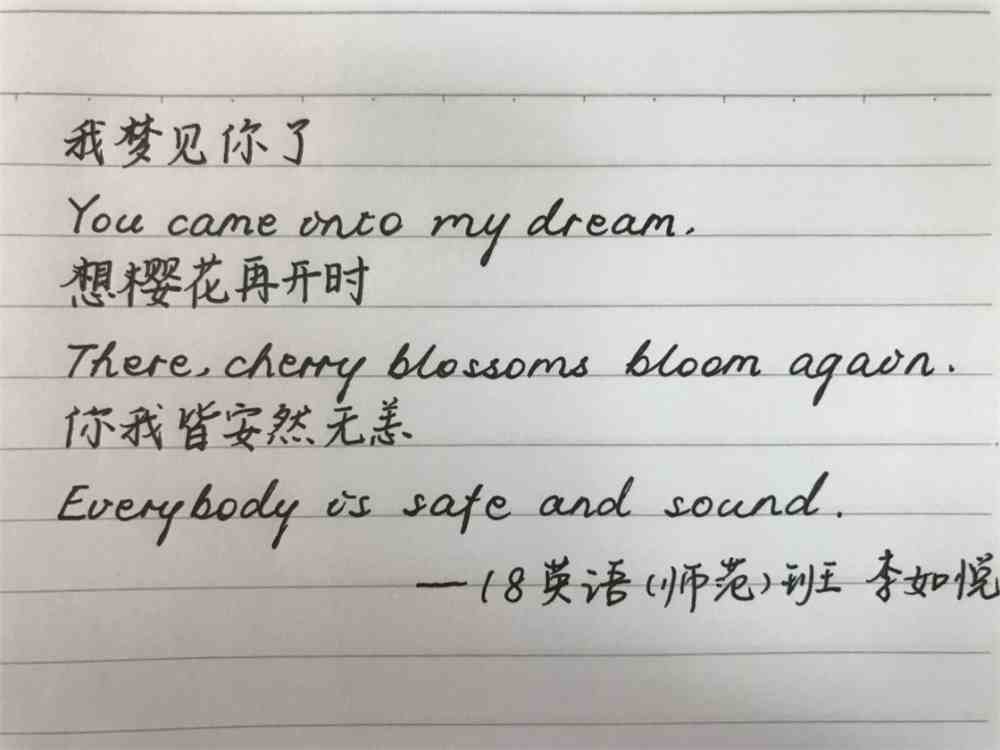 我梦见你了
You came into my dream.
想樱花再开时
There, cherry blossoms bloom again.
你我皆安然无恙
Everybody is safe and sound.
—18英语(师范)班 李如悦